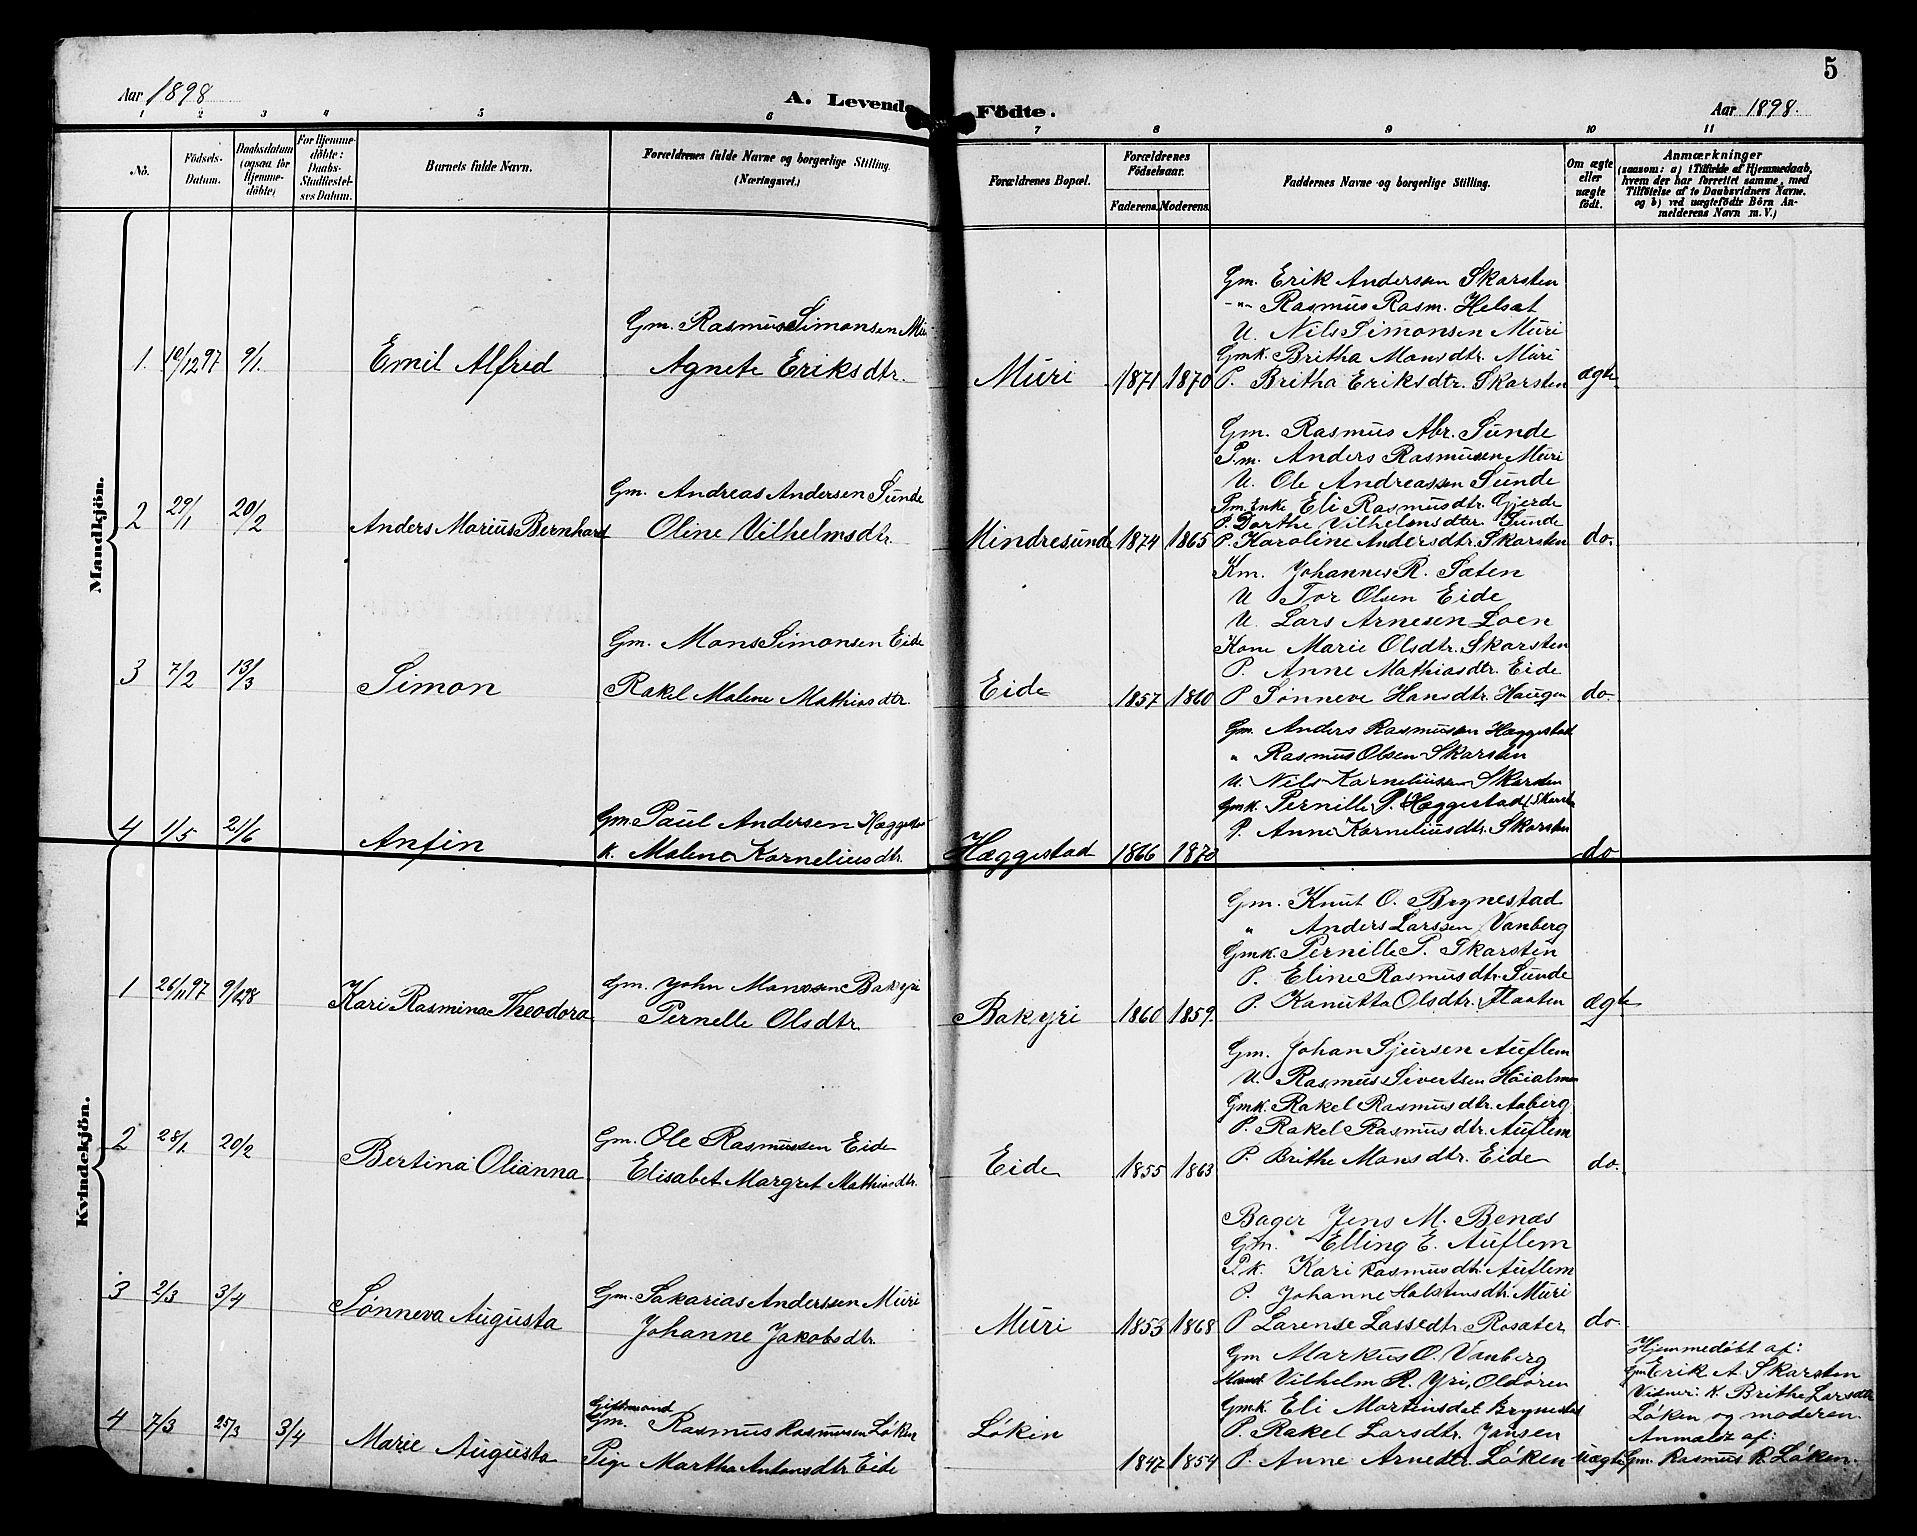 5
Aar 1898
A. Levende Födte.
Aar 1898.
1 2 3 4 5 6 7 8 9 10 11
No.
Födsels-
Datum.
Daabsdatum
(ogsaa for
Hjemme-
döbte)
For Hjemme-
döbte:
Daabs-
Stadfæstel-
ses Datum.
Barnets fulde Navn.
Forældrenes fulde Navne og borgerlige Stilling.
(Næringsvei.)
Forældrenes Bopæl.
Forældrenes
Födselsaar.
Faderens.
Moderens.
Faddernes Navne og borgerlige Stilling.
Om ægte
eller
uægte
födt.
Anmærkninger
(saasom: a) i Tilfælde af Hjemmedaab,
hvem der har forrettet samme, med
Tilföielse af to Daabsvidners Navne.
og b) ved uægtefödte Börn An-
melderens Navn m. V.)
Mandkjön.
1. 10/12 97 9/1.
Emil Alfred
Gm. Rasmus Simonsen Müri
Agnete Eriksdtr.
Müri 1871 1870
Gm. Erik Andersen Skarsten
-"- Rasmus Rasm. Helsat
U. Nils Simonsen Müri
Gmk. Britha Monsdtr. Müri
P. Britha Eriksdtr. Skarsten
ægte
2 29/1 20/2
Anders Marius Bernhard
Gm. Andreas Andersen Sunde
Oline Vilhelmsdtr.
Mindresunde 1874 1865
Gm. Rasmus Abr. Sunde
P.m. Anders Rasmusen Müri
U. Ole Andreassen Sunde
Pm. Enke Eli Rasmusdtr. Gjerde
P. Dorthe Vilhelmsdter Sunde
P. Karoline Andersdtr. Skarsten
do.
3 7/2 13/3
Simon
Gm. Mons Simonsen Eide
Rakel Malene Mathiasdtr.
Eide 1857 1860
Km. Johannes R. Sæten
U Tor Olsen Eide
U. Lars Arnesen Loen
Kone Marie Olsdtr. Skarsten
P. Anne Mathiasdtr. Eide
P Sønneve Hansdtr. Haugen
do
4 1/5 21/6
Anfin
Gm. Paul Andersen Hæggestad
K. Malene Korneliusdtr.
Hæggestad 1866 1870
Gm. Anders Rasmusen Hæggestad
" Rasmus Olsen Skarsten
U. Nils Korneliusen Skarsten
Gmk. Pernille P. Hæggestad (Skarste
P. Anne Korneliusdtr. Skarsten
do
Kvindekjön.
1 26/11 97 9/1 98
Kari Rasmina Theodora
Gm. John Monssen Bakyri
Pernelle Olsdtr.
Bakyri 1860 1859.
Gm. Knut O. Brynestad
" Anders Larssen Vanberg
Gmk. Pernille P. Skarsten
P. Eline Rasmusdtr. Sunde
P. Kanutta Olsdtr. Flaaten
ægte
2 28/1 20/2
Bertina Olianna
Gm. Ole Rasmussen Eide
Elisabet Margret Mathiasdtr.
Eide 1855 1863
Gm. Johan Sjursen Auflem
U. Rasmus Sivertsen Höialmen
Gmk. Rakel Rasmusdtr. Aaberg
P. Rakel Rasmusdtr. Auflem
P. Brithe Monsdtr. Eide
do.
3 2/3 3/4
Sønneva Augusta
Gm. Sakarias Anderssen Müri
Johanne Jakobsdtr.
Müri 1853 1868
Bager Jens M. Benæs
Gm. Elling E. Auflem
P.k. Kari Rasmusdtr. Auflem
P. Johanne Holstensdtr. Müri
P Larense Lassedtr. Rosæter
do
4 7/3 25/3 3/4
Marie Augusta
Giftmand
Gm. Rasmus Rasmusen Løken
Pige Martha Antonsdtr. Eide
Løkin 1847 1854
Gm Markus O. Vanberg
Hand. Vilhelm R. Yri, Oldören
Gmk. Eli Martinsdet. Brynestad
P. Rakel Larsdtr. Jansen
P. Anne Arnedtr. Løken
uægte
Hjemmedöbt af:
Gm Erik A Skarsten
Vidner: K. Brithe Larsdtr
Løken og moderen.
Anmeldt af:
Gm. Rasmus R. Løken.